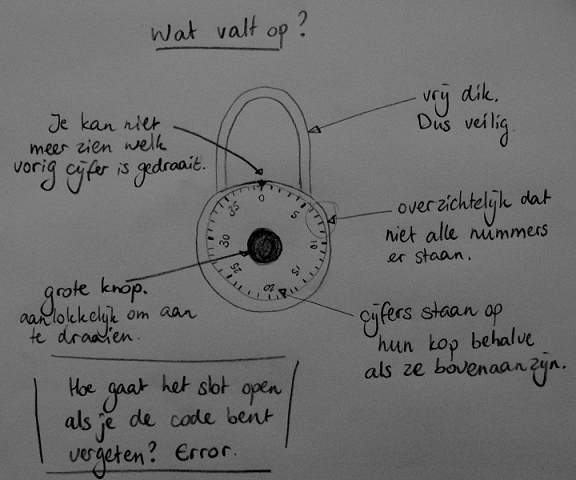 Wat valt op?
Je kan niet
meer zien welk
vorig cijfer is gedraait.
vrij dik.
Dus veilig
overzichtelijk dat
niet alle nummers
er staan.
0
5
10
15
20
25
30
35
grote knop.
aanlokkelijk om aan
te draaien.
cijfers staan op
hun kop behalve
als ze bovenaan zijn.
Hoe gaat het slot open
als je de code bent
vergeten? Error.